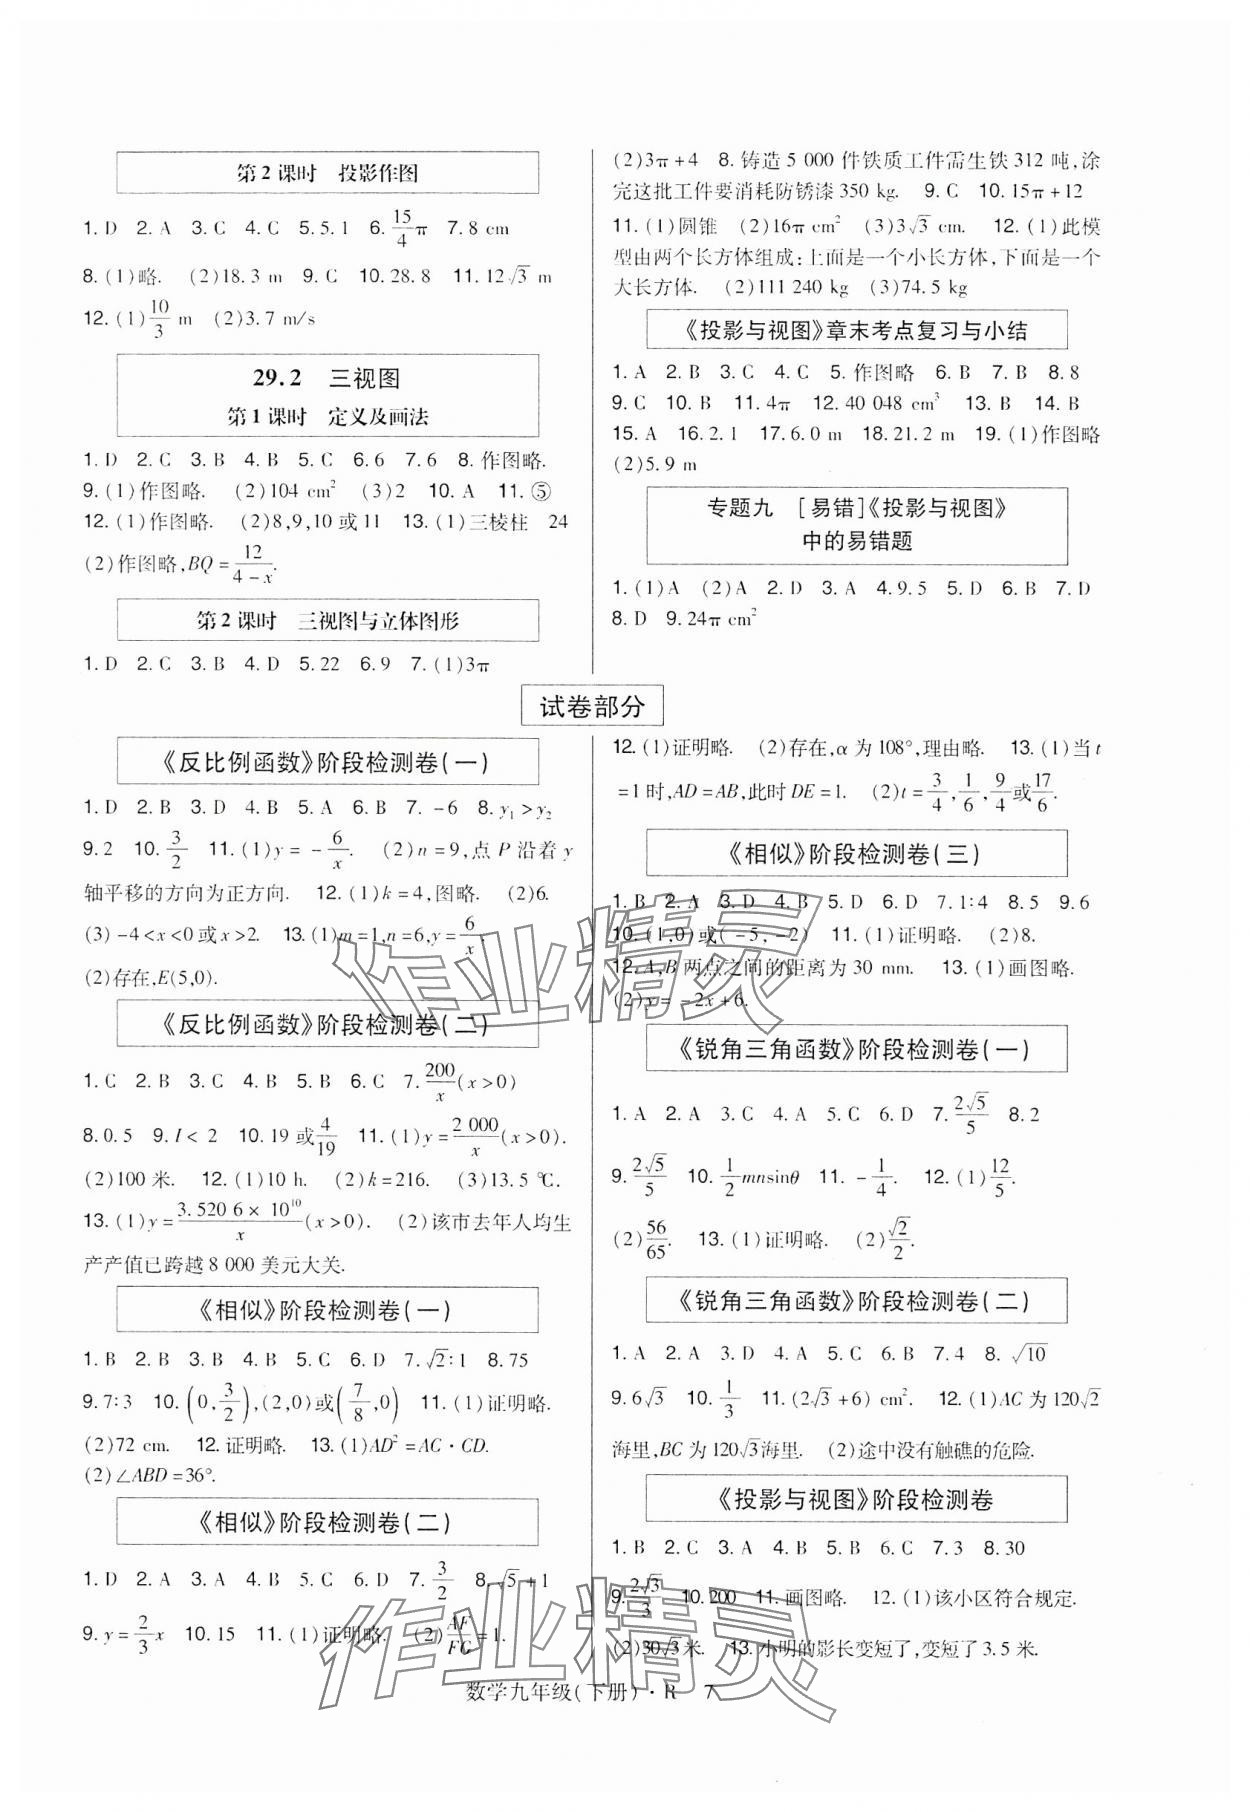 第2课时 投影作图
1. D 2. A 3. C 4. C 5. 5. 1 6. 15/4 π 7. 8 cm
8. (1)略. (2)18. 3 m 9. C 10. 28. 8 11. 12√3 m
12. (1)10/3 m (2)3. 7 m/s
29. 2 三视图
第1课时 定义及画法
1. D 2. C 3. B 4. B 5. C 6. 6 7. 6 8. 作图略.
9. (1)作图略. (2)104 cm² (3)2 10. A 11. ⑤
12. (1)作图略. (2)8,9,10或11 13. (1)三棱柱 24
(2)作图略,BQ = 12/(4-x).
第2课时 三视图与立体图形
1. D 2. C 3. B 4. D 5. 22 6. 9 7. (1)3π
(2)3π+4 8. 铸造5 000件铁质工件需生铁312吨,涂
完这批工件要消耗防锈漆350 kg. 9. C 10. 15π+12
11. (1)圆锥 (2)16π cm² (3)3√3 cm. 12. (1)此模
型由两个长方体组成:上面是一个小长方体,下面是一个
大长方体. (2)111 240 kg (3)74. 5 kg
《投影与视图》章末考点复习与小结
1. A 2. B 3. C 4. C 5. 作图略 6. B 7. B 8. 8
9. C 10. B 11. 4π 12. 40 048 cm³ 13. B 14. B
15. A 16. 2. 1 17. 6. 0 m 18. 21. 2 m 19. (1)作图略
(2)5. 9 m
专题九 [易错]《投影与视图》
中的易错题
1. (1)A (2)A 2. D 3. A 4. 9. 5 5. D 6. B 7. D
8. D 9. 24π cm²
试卷部分
《反比例函数》阶段检测卷(一)
1. D 2. B 3. D 4. B 5. A 6. B 7. -6 8. y₁>y₂
9. 2 10. 3/2 11. (1)y = -6/x. (2)n=9,点P沿着y
轴平移的方向为正方向. 12. (1)k=4,图略. (2)6.
(3)-4<x<0或x>2. 13. (1)m=1,n=6,y=6/x.
(2)存在,E(5,0).
《反比例函数》阶段检测卷(二)
1. C 2. B 3. C 4. B 5. B 6. C 7. 200/x (x>0)
8. 0. 5 9. I<2 10. 19或4/19 11. (1)y=2 000/x (x>0).
(2)100米. 12. (1)10 h. (2)k=216. (3)13. 5 ℃.
13. (1)y=3. 520 6×10¹⁰/x (x>0). (2)该市去年人均生
产产值已跨越8 000美元大关.
《相似》阶段检测卷(一)
1. B 2. B 3. C 4. B 5. C 6. D 7. √2:1 8. 75
9. 7:3 10. (0,3/2),(2,0)或(7/8,0) 11. (1)证明略.
(2)72 cm. 12. 证明略. 13. (1)AD²=AC·CD.
(2)∠ABD=36°.
《相似》阶段检测卷(二)
1. D 2. A 3. A 4. B 5. D 6. D 7. 3/2 8. √5+1
9. y=2/3 x 10. 15 11. (1)证明略. (2)AF/FG=1.
12. (1)证明略. (2)存在,α为108°,理由略. 13. (1)当t
=1时,AD=AB,此时DE=1. (2)t=3/4,1/6,9/4或17/6.
《相似》阶段检测卷(三)
1. B 2. A 3. D 4. B 5. D 6. D 7. 1:4 8. 5 9. 6
10. (1,0)或(-5,-2) 11. (1)证明略. (2)8.
12. A,B两点之间的距离为30 mm. 13. (1)画图略.
(2)y=-2x+6.
《锐角三角函数》阶段检测卷(一)
1. A 2. A 3. C 4. A 5. C 6. D 7. 2√5/5 8. 2
9. 2√5/5 10. 1/2 mnsinθ 11. -1/4. 12. (1)12/5.
(2)56/65. 13. (1)证明略. (2)√2/2.
《锐角三角函数》阶段检测卷(二)
1. A 2. A 3. D 4. A 5. C 6. B 7. 4 8. √10
9. 6√3 10. 1/3 11. (2√3+6) cm². 12. (1)AC为120√2
海里,BC为120√3海里. (2)途中没有触礁的危险.
《投影与视图》阶段检测卷
1. B 2. C 3. A 4. B 5. B 6. C 7. 3 8. 30
9. 2√3/3 10. 200 11. 画图略. 12. (1)该小区符合规定.
(2)30√3米. 13. 小明的影长变短了,变短了3. 5米.
数学九年级(下册)·R 7
作业精灵
作业精灵